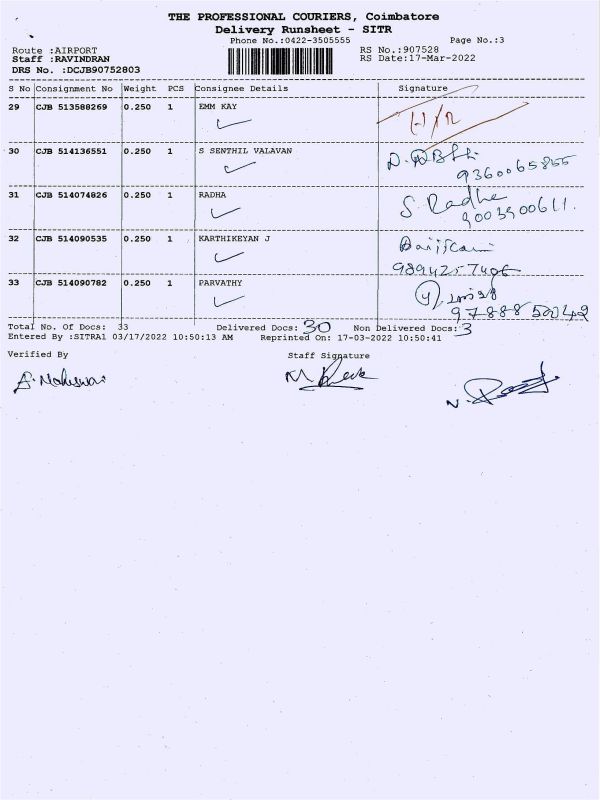 THE PROFESSIONAL COURIERS, Coimbatore
Delivery Runsheet - SITR
Phone No.:0422-3505555 Page No.:3
Route :AIRPORT RS No.:907528
Staff :RAVINDRAN RS Date:17-Mar-2022
DRS No. :DCJB90752803
S No Consignment No Weight PCS Consignee Details Signature
29 CJB 513588269 0.250 1 EMM KAY
30 CJB 514136551 0.250 1 S SENTHIL VALAVAN
9360065855
31 CJB 514074826 0.250 1 RADHA S. Radha
9003900611.
32 CJB 514090535 0.250 1 KARTHIKEYAN J
33 CJB 514090782 0.250 1 PARVATHY
Total No. Of Docs: 33 Delivered Docs: 30 Non Delivered Docs: 3
Entered By :SITRA1 03/17/2022 10:50:13 AM Reprinted On: 17-03-2022 10:50:41
Verified By Staff Signature